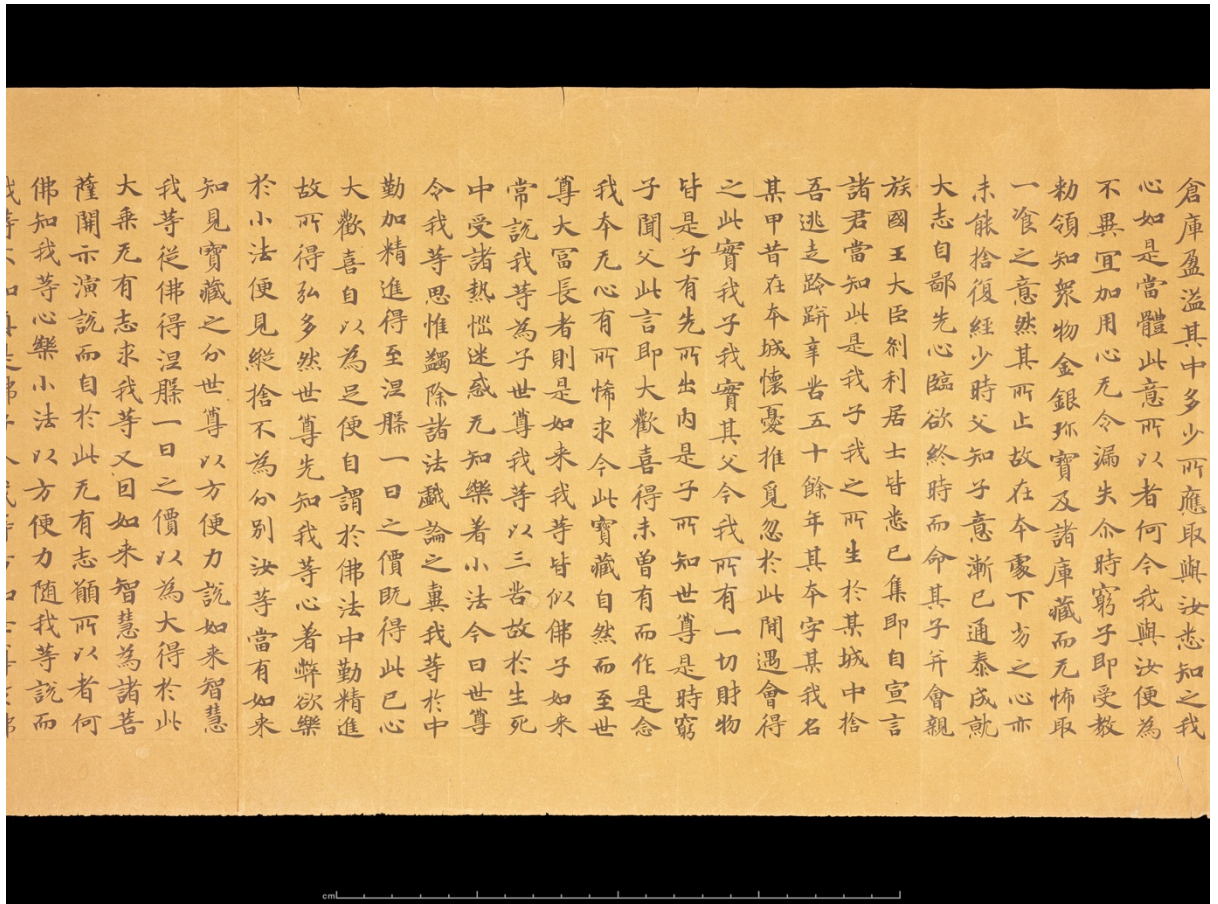 倉庫盈溢其中多少所應取與汝悉知之我
心如是當體此意所以者何今我與汝便為
不異宜加用心无令漏失尒時窮子即受教
勑領知衆物金銀珎寶及諸庫藏而无悕取
一飡之意然其所止故在本處下劣之心亦
未能捨復經少時父知子意漸已通泰成就
大志自鄙先心臨欲終時而命其子并會親
族國王大臣刹利居士皆悉已集即自宣言
諸君當知此是我子我之所生於某城中捨
吾逃走跉跰辛苦五十餘年其本字某我名
某甲昔在本城懷憂推覓忽於此閒遇會得
之此實我子我實其父今我所有一切財物
皆是子有先所出内是子所知世尊是時窮
子聞父此言即大歡喜得未曾有而作是念
我本无心有所悕求今此寶藏自然而至世
尊大冨長者則是如来我等皆似佛子如来
常說我等為子世尊我等以三苦故於生死
中受諸熱惱迷惑无知樂著小法今日世尊
令我等思惟蠲除諸法戲論之糞我等於中
勤加精進得至涅槃一日之價既得此已心
大歡喜自以為足便自謂於佛法中勤精進
故所得弘多然世尊先知我等心著弊欲樂
於小法便見縱捨不為分別汝等當有如来
知見寶藏之分世尊以方便力說如来智慧
我等從佛得涅槃一日之價以為大得於此
大乘无有志求我等又因如来智慧為諸菩
薩開示演說而自於此无有志願所以者何
佛知我等心樂小法以方便力随我等說而